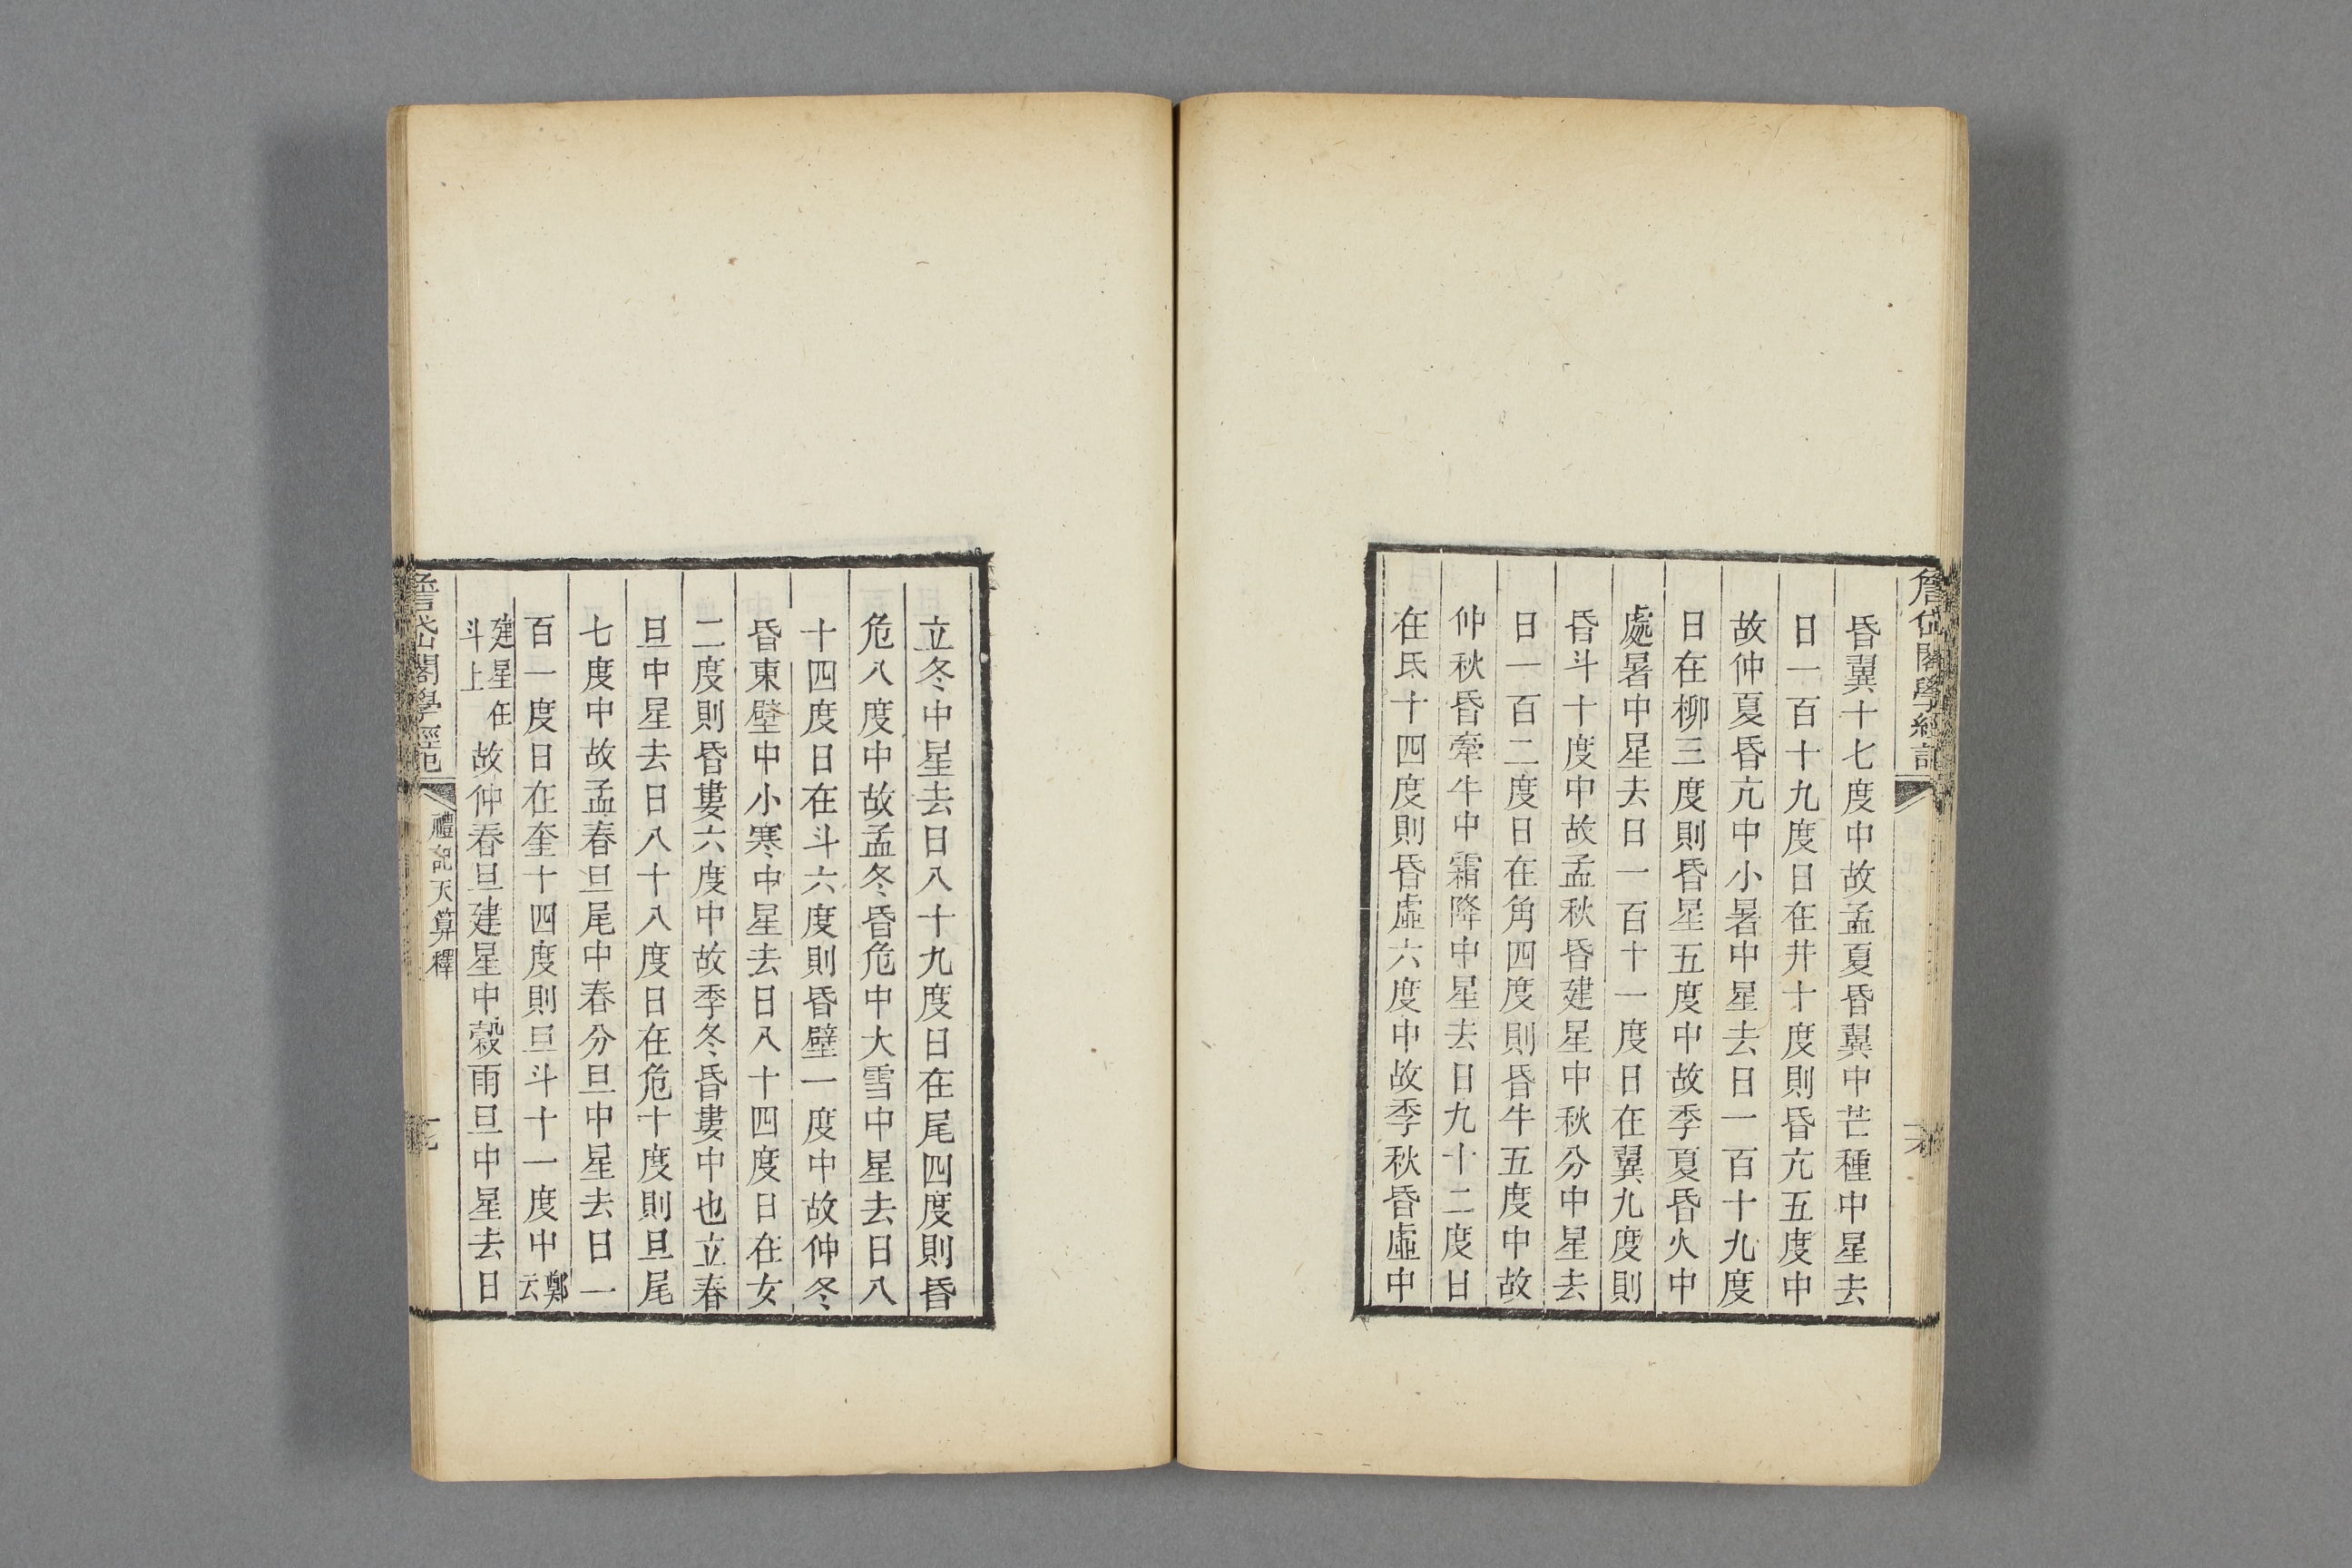 昏翼十七度中故孟夏昏翼中芒種中星去
日一百十九度日在井十度則昏亢五度中
故仲夏昏亢中小暑中星去日一百十九度
日在柳三度則昏星五度中故季夏昏火中
處暑中星去日一百十一度日在翼九度則
昏斗十度中故孟秋昏建星中秋分中星去
日一百二度日在角四度則昏牛五度中故
仲秋昏牽牛中霜降中星去日九十二度日
在氐十四度則昏虛六度中故季秋昏虛中
立冬中星去日八十九度日在尾四度則昏
危八度中故孟冬昏危中大雪中星去日八
十四度日在斗六度則昏壁一度中故仲冬
昏東壁中小寒中星去日八十四度日在女
二度則昏婁六度中故季冬昏婁中也立春
旦中星去日八十八度日在危十度則旦尾
七度中故孟春旦尾中春分旦中星去日一
百一度日在奎十四度則旦斗十一度中鄭云
建星在斗上故仲春旦建星中穀雨旦中星去日
詹岱閣學經
禮記天算釋